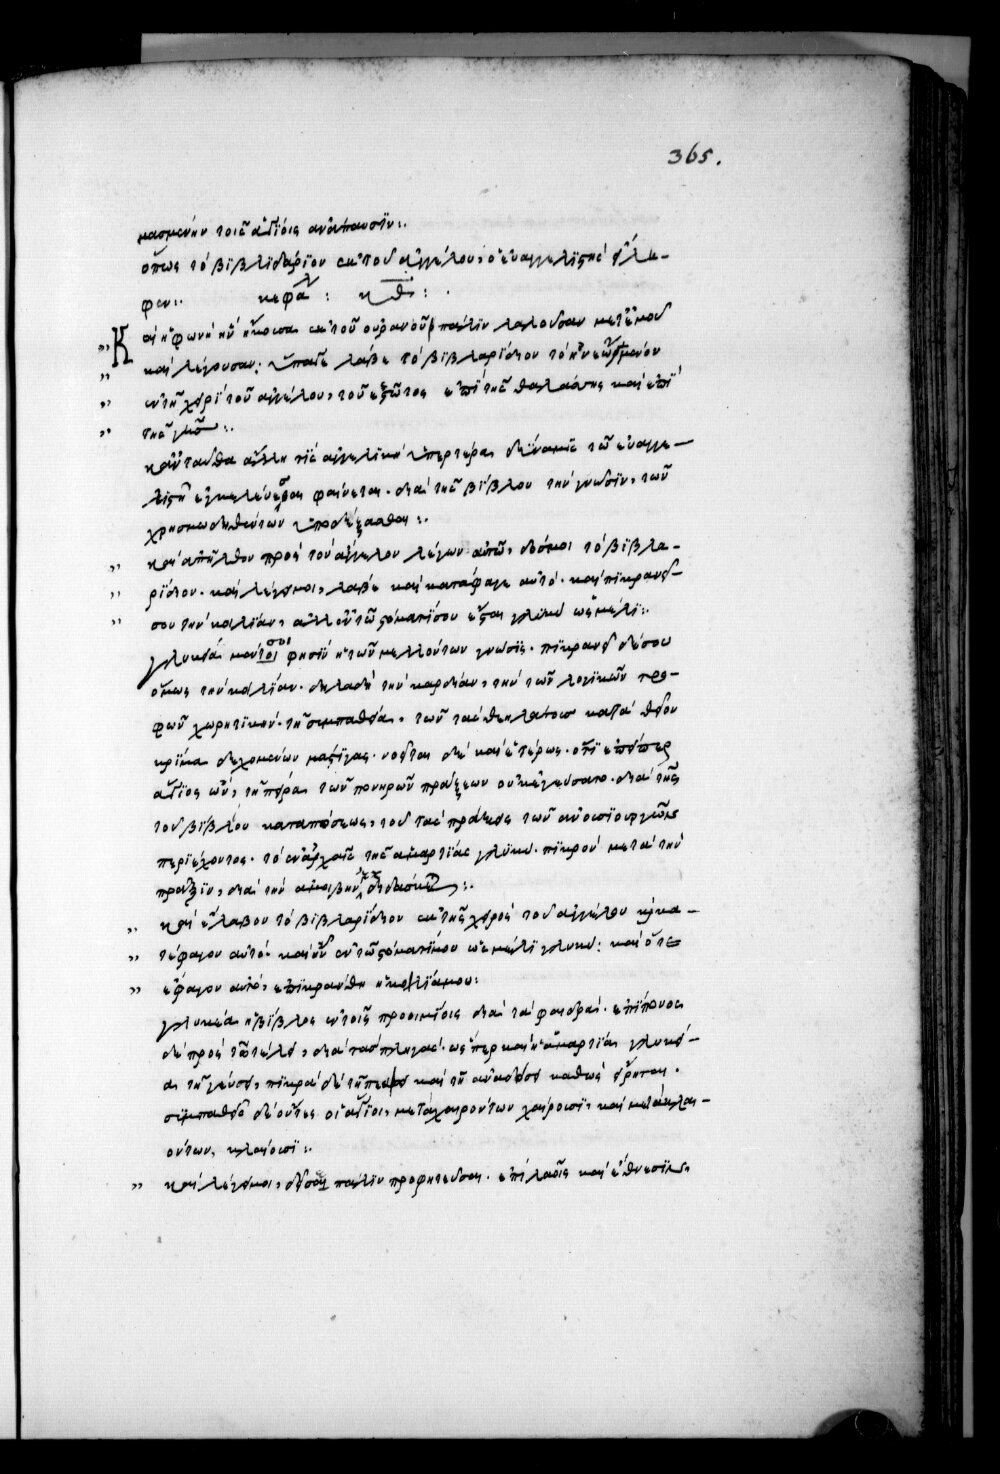 365.
μασμενην τοῖς ἁγίοις ἀνάπαυσιν:.
ὅπως τὸ βιβλιδάριον ἐκ τοῦ ἀγγέλου, ὁ εὐαγγελιστὴς εἴλη-
φεν:. κεφά: κθ:.
Καὶ ἡ φωνὴ ἣν ἤκουσα ἐκ τοῦ οὐρανοῦ πάλιν λαλοῦσαν μετ' ἐμοῦ
καὶ λέγουσαν: ὕπαγε λάβε τὸ βιβλαρίδιον τὸ ἠνεῳγμένον
ἐν τῇ χειρὶ τοῦ ἀγγέλου, τοῦ ἑστῶτος ἐπὶ τῆς θαλάσσης καὶ ἐπὶ
τῆς γῆς:.
κἀνταῦθα ἄλλη τίς ἀγγελικὴ ὑπερτέρα δύναμις τῷ εὐαγγε-
λιστῇ ἐγκελεύεσθαι φαίνεται. διὰ τῆς βίβλου τὴν γνῶσιν, τῶν
χρησμωδηθέντων ὑποδέξασθαι:.
καὶ ἀπῆλθον πρὸς τὸν ἄγγελον λέγων αὐτῷ, δός μοι τὸ βιβλα-
ρίδιον. καὶ λέγει μοι, λάβε καὶ κατάφαγε αὐτό. καὶ πικρανεῖ
σου τὴν κοιλίαν, ἀλλ' ἐν τῷ στόματί σου ἔσται γλυκὺ ὡς μέλι:.
γλυκεῖα μέν τοι σοι φησὶν ἡ τῶν μελλόντων γνῶσις. πικρανεῖ δέ σου
ὅμως τὴν κοιλίαν. δηλαδὴ τὴν καρδίαν, τὴν τῶν λογικῶν τρο-
φῶν χωρητικήν. τῇ συμπαθείᾳ. τῶν τὰς θεηλάτους κατὰ θείον
κρίμα δεχομένων μάστιγας. νοεῖται δὲ καὶ ἑτέρως. ὅτι ἐπείπερ
ἅγιος ὢν, τῇ πείρᾳ τῶν πονηρῶν πράξεων οὐκ ἐγεύσατο. διὰ τῆς
τοῦ βιβλίου καταπόσεως, τοῦ τὰς πράξεις τῶν ἀνοσιουργῶν
περιέχοντος. τὸ ἐν ἀρχαῖς τῆς ἁμαρτίας γλυκὺ. πικρὸν μετὰ τὴν
πρᾶξιν, διὰ τὴν ἀμοιβὴν διδάσκεται:.
καὶ ἔλαβον τὸ βιβλαρίδιον ἐκ τῆς χειρὸς τοῦ ἀγγέλου κὶ κα-
τέφαγον αὐτό. καὶ ἦν ἐν τῷ στόματί μου ὡς μέλι γλυκύ: καὶ ὅτε
ἔφαγον αὐτό, ἐπικράνθη ἡ κοιλία μου:
γλυκεῖα ἡ βίβλος ἐν τοῖς προοιμίοις διὰ τὰ φαιδρά. ἐπίπονος
δὲ πρὸς τῷ τέλει, διὰ τὰς πληγάς. ὥσπερ καὶ ἡ ἁμαρτία γλυκεῖ-
α τῇ γεύσει, πικρὰ δὲ τῇ πέψει καὶ τῇ ἀναδόσει καθὼς εἴρηται.
συμπαθεῖς δὲ ὄντες οἱ ἅγιοι, μετὰ χαιρόντων χαίρουσι, καὶ μετὰ κλαι-
όντων, κλαίουσι:.
καὶ λέγει μοι, δεῖ σε πάλιν προφητεῦσαι. ἐπὶ λαοῖς καὶ ἔθνεσι καὶ